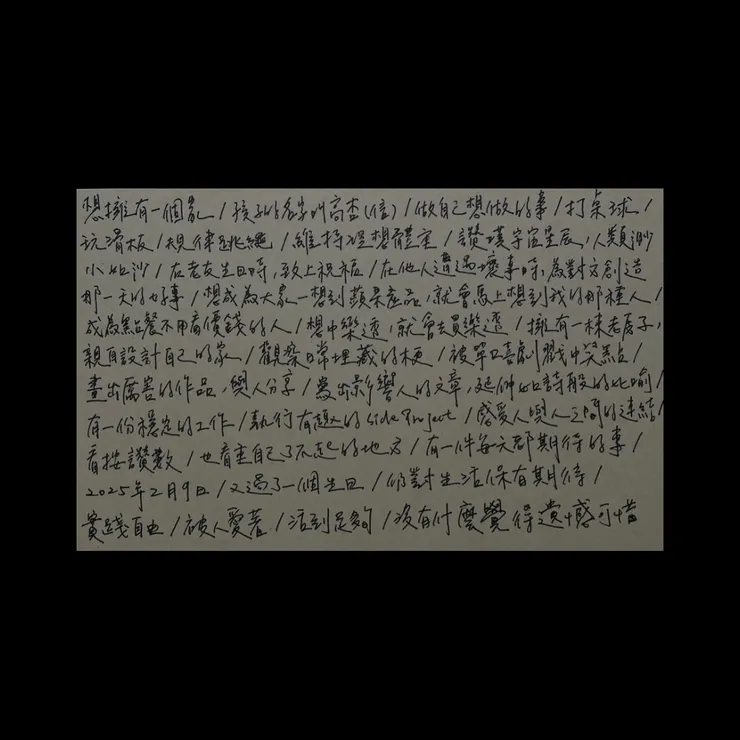 想擁有一個家 / 孩子的名字叫高杏(信) / 做自己想做的事 / 打桌球 /
玩滑板 / 規律跳繩 / 維持理想體重 / 讚嘆宇宙星辰,人類渺
小如沙 / 在老友生日時,致上祝福 / 在他人遭遇壞事時,為對方創造
那一天的好事 / 想成為大家一想到蘋果產品,就會馬上想到我的那種人 /
成為點餐不用看價錢的人 / 想中樂透,就會去買樂透 / 擁有一棟老房子,
親自設計自己的家 / 觀察日常埋藏的梗 / 被單口喜劇戳中笑點 /
畫出厲害的作品,與人分享 / 寫出影響人的文章,延伸如詩般的比喻 /
有一份穩定的工作 / 執行有趣的 side project / 感受人與人之間的連結 /
看按讚數 / 也看重自己了不起的地方 / 有一件每天都期待的事 /
2025年2月9日 / 又過了一個生日 / 仍對生活保有期待 /
實踐自由 / 被人愛著 / 活到足夠 / 沒有什麼覺得遺憾可惜